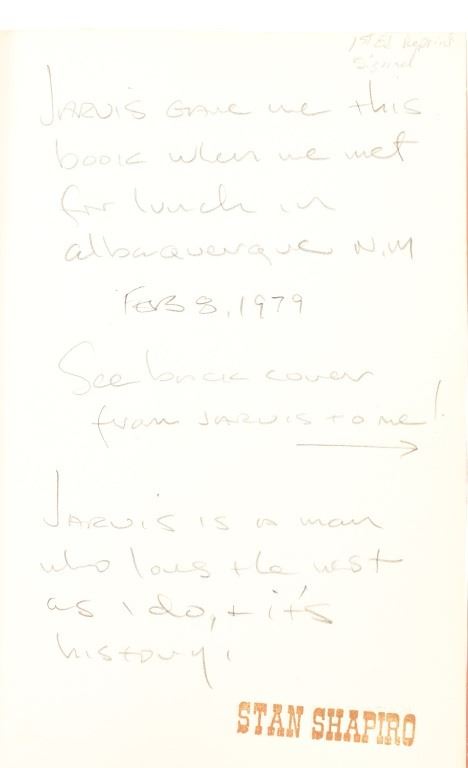 1st Ed Reprint
Signed
JARVIS GAVE me this
book when we met
for lunch in
albaquerque N.M
FEB 8, 1979
See back cover
from JARVIS to me!
JARVIS is a man
who loves the west
as I do, + it's
history.
STAN SHAPIRO